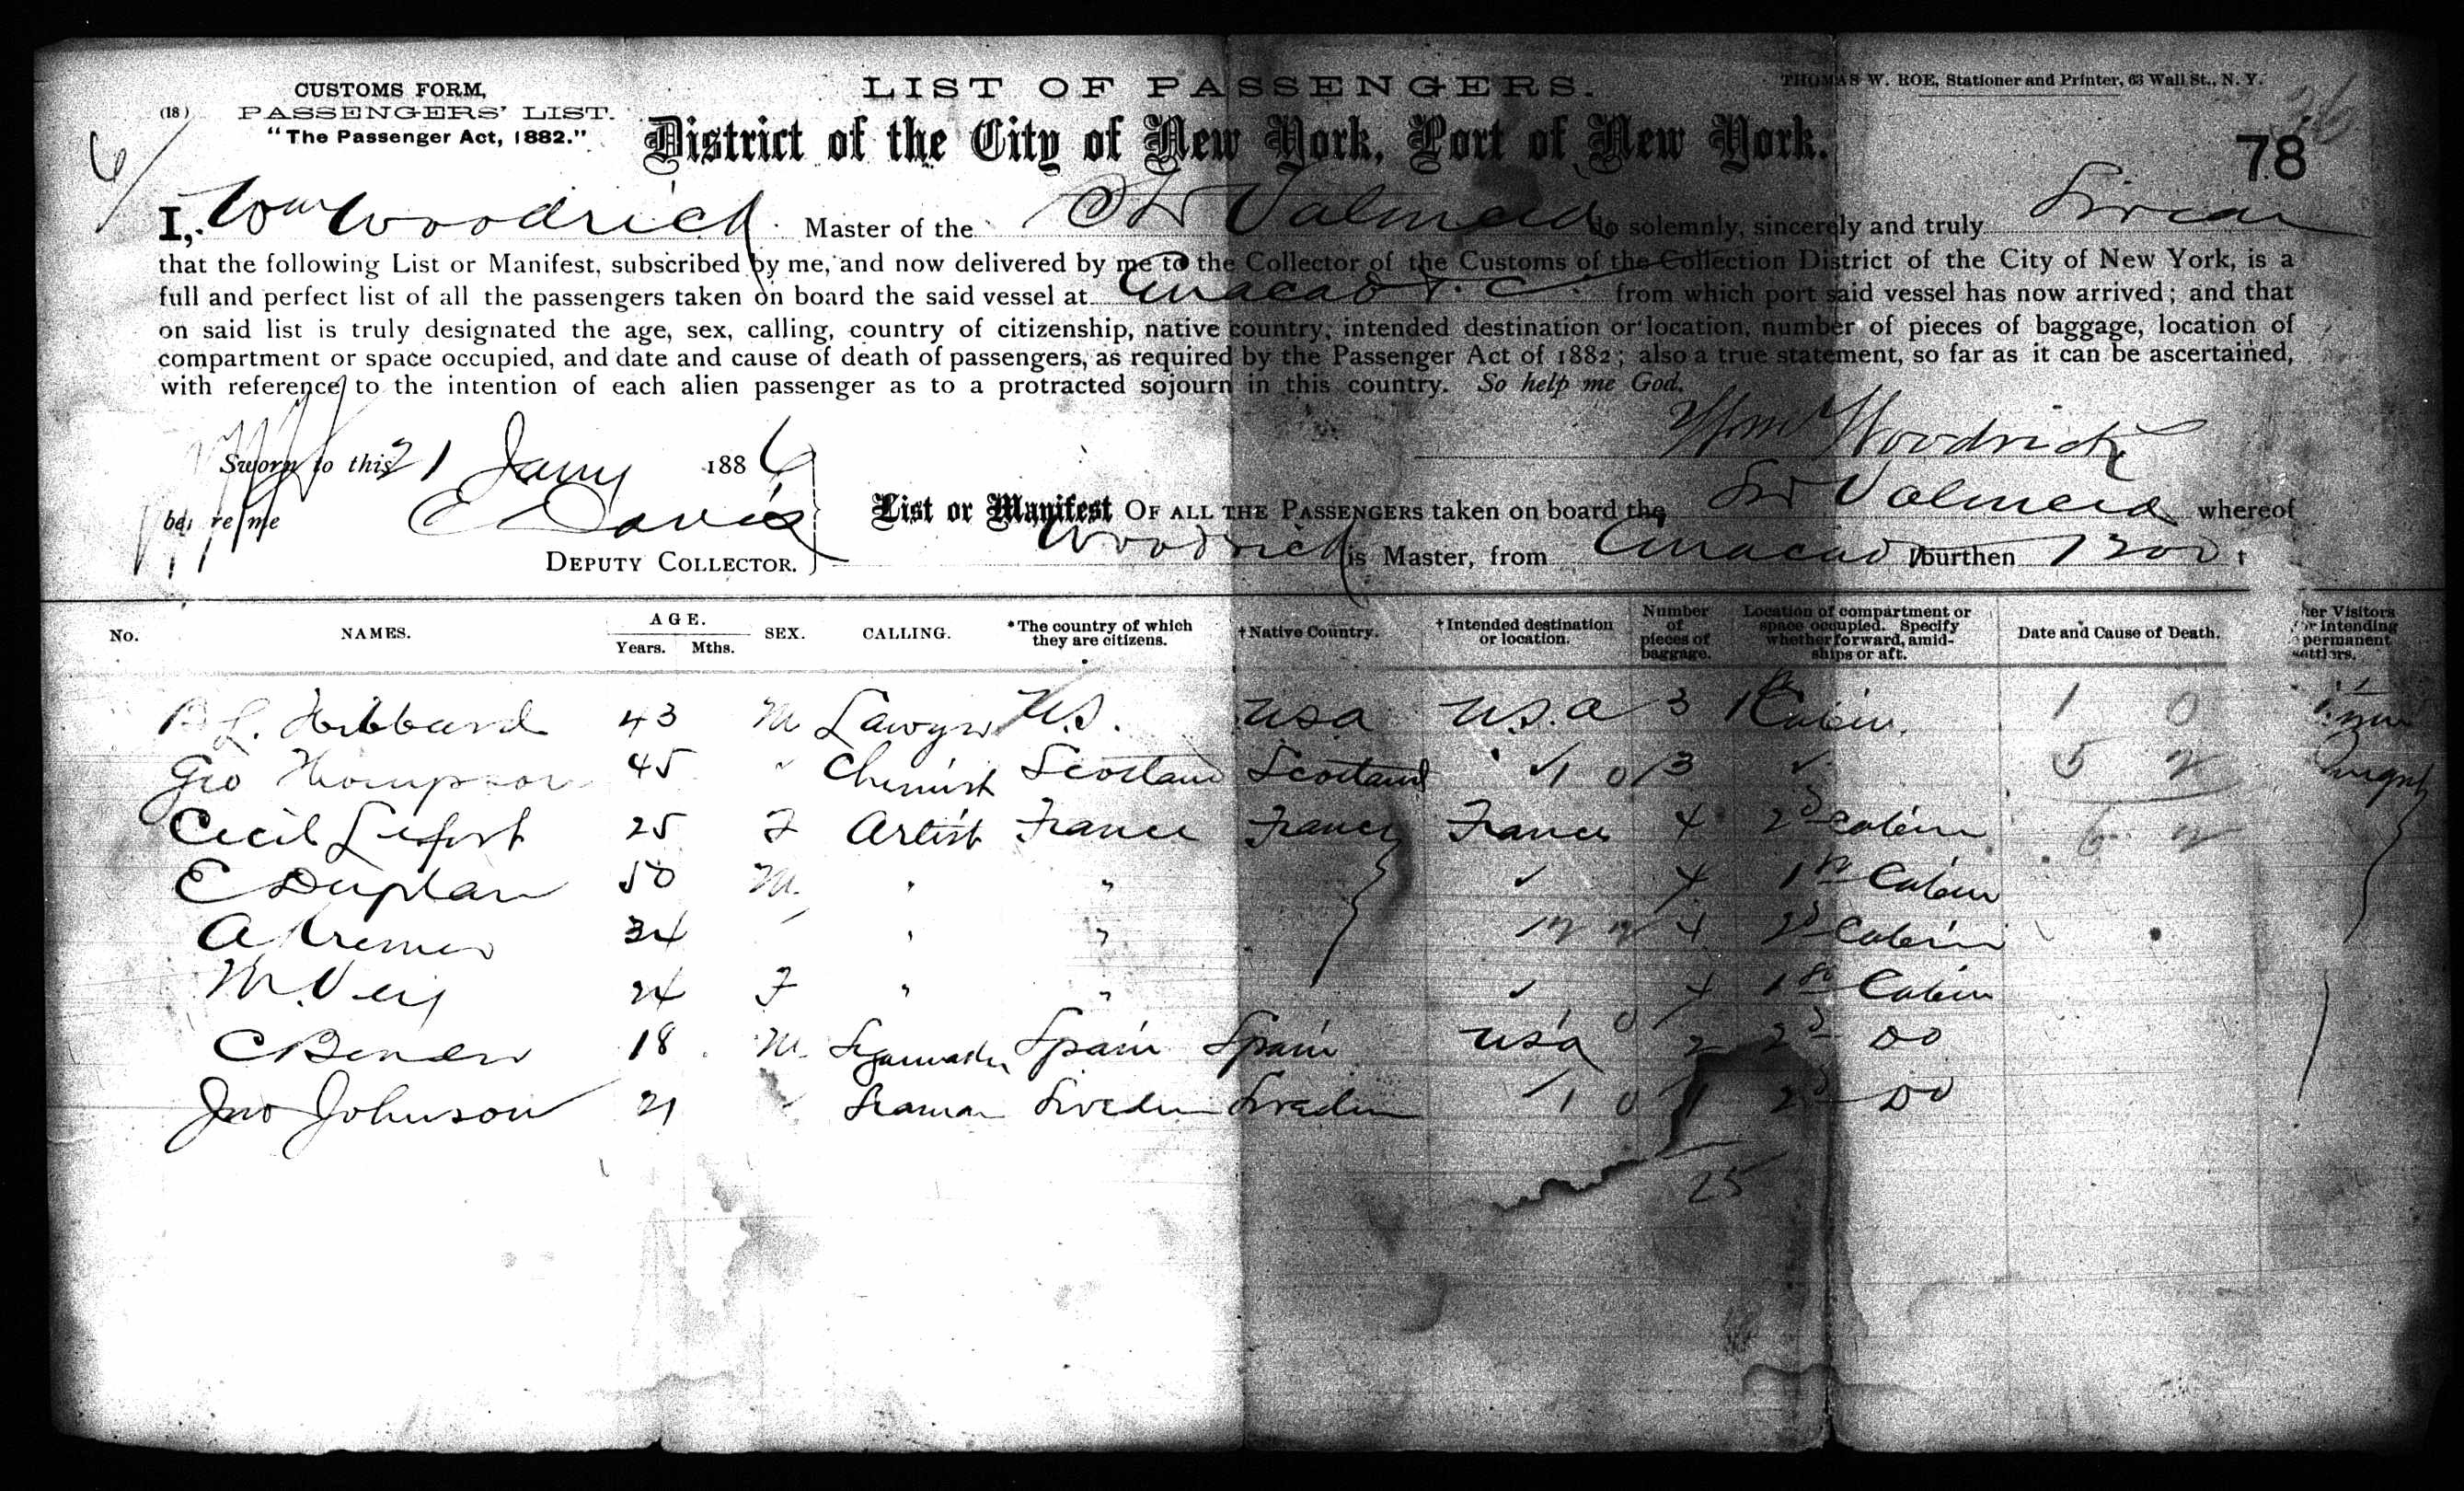 CUSTOMS FORM,
(18) PASSENGERS' LIST.
"The Passenger Act, 1882."
LIST OF PASSENGERS.
THOMAS W. ROE, Stationer and Printer, 63 Wall St., N. Y.
District of the City of New York, Port of New York.
78
I, Wm Woodrick Master of the Str Valmeid do solemnly, sincerely and truly Swear
that the following List or Manifest, subscribed by me, and now delivered by me to the Collector of the Customs of the Collection District of the City of New York, is a
full and perfect list of all the passengers taken on board the said vessel at Curacao from which port said vessel has now arrived; and that
on said list is truly designated the age, sex, calling, country of citizenship, native country, intended destination or location, number of pieces of baggage, location of
compartment or space occupied, and date and cause of death of passengers, as required by the Passenger Act of 1882; also a true statement, so far as it can be ascertained,
with reference to the intention of each alien passenger as to a protracted sojourn in this country. So help me God.
Wm Woodrick
Sworn to this 21 Jany 1886
before me E Davis
DEPUTY COLLECTOR.
List or Manifest OF ALL THE PASSENGERS taken on board the Str Valmeid whereof
Woodrick is Master, from Curacao burthen 1200 t
No. NAMES. AGE. Years. Mths. SEX. CALLING. *The country of which they are citizens. †Native Country. †Intended destination or location. Number of pieces of baggage. Location of compartment or space occupied. Specify whether forward, amidships or aft. Date and Cause of Death.
L. Hibbard 43 M Lawyer U.S. USA U.S.A 3 1st Cabin. 1 0
Geo Thompson 45 " Chemist Scotland Scotland ✓ 1 0 3 ✓ 5 2
Cecil Lefort 25 F Artist France France France 4 2d Cabin 6 2
E Duplan 50 M. " " ✓ 4 1st Cabin
A Kremer 34 " " 4 2d Cabin
M. 24 F " " ✓ 4 1st Cabin
C 18 M. Spain Spain USA 2 2d Do
Jno Johnson 21 Seaman Sweden Sweden ✓ 1 0 1 2d Do
25